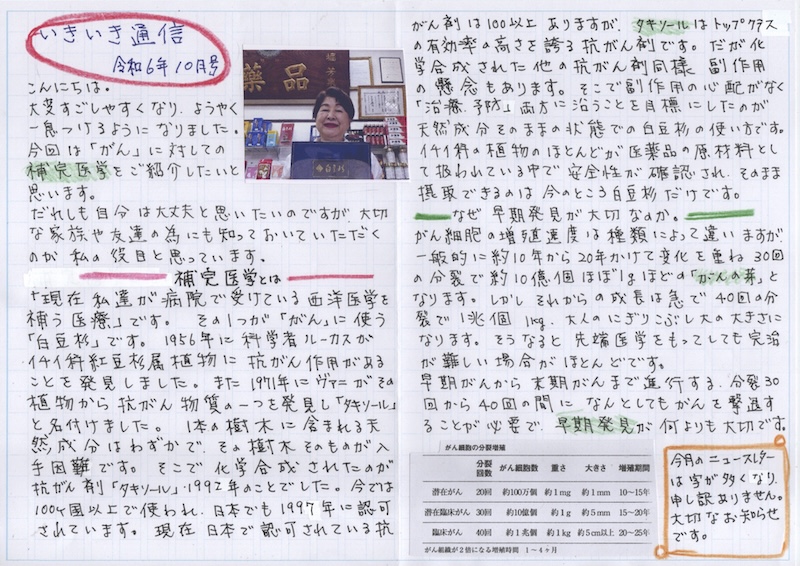 いきいき通信
令和6年10月号
こんにちは。
大変すごしやすくなり、ようやく
一息つけるようになりました。
今回は「がん」に対しての
補完医学をご紹介したいと
思います。
だれしも自分は大丈夫と思いたいのですが、大切
な家族や友達の為にも知っておいていただく
のが私の役目と思っています。
補完医学とは
「現在私達が病院で受けている西洋医学を
補う医療」です。その1つが「がん」に使う
「白豆杉」です。1956年に科学者ルーカスが
イチイ科紅豆杉属植物に抗がん作用がある
ことを発見しました。また1971年にヴァニがその
植物から抗がん物質の一つを発見し「タキソール」
と名付けました。1本の樹木に含まれる天
然成分はわずかで、その樹木そのものが入
手困難です。そこで化学合成されたのが
抗がん剤「タキソール」1992年のことでした。今では
100ヶ国以上で使われ、日本でも1997年に認可
されています。現在日本で認可されている抗
薬品
がん剤は100以上ありますが、タキソールはトップクラス
の有効率の高さを誇る抗がん剤です。だが化
学合成された他の抗がん剤同様、副作用
の懸念もあります。そこで副作用の心配がなく
「治療、予防」両方に沿うことを目標にしたのが
天然成分そのままの状態での白豆杉の使い方です。
イチイ科の植物のほとんどが医薬品の原材料とし
て扱われている中で安全性が確認され、そのまま
摂取できるのは今のところ白豆杉だけです。
なぜ早期発見が大切なのか。
がん細胞の増殖速度は種類によって違いますが
一般的に約10年から20年かけて変化を重ね30回
の分裂で約10億個ほぼ1gほどの「がんの芽」と
なります。しかしそれからの成長は急で40回の分
裂で1兆個1kg、大人のにぎりこぶし大の大きさに
なります。そうなると先端医学をもってしても完治
が難しい場合がほとんどです。
早期がんから末期がんまで進行する、分裂30
回から40回の間になんとしてもがんを撃退す
ることが必要で、早期発見が何よりも大切です。
がん細胞の分裂増殖
分裂回数 がん細胞数 重さ 大きさ 増殖期間
潜在がん 20回 約100万個 約1mg 約1mm 10〜15年
潜在臨床がん 30回 約10億個 約1g 約5mm 15〜20年
臨床がん 40回 約1兆個 約1kg 約5cm以上 20〜25年
がん組織が2倍になる増殖時間 1〜4ヶ月
今月のニュースレター
は字が多くなり、
申し訳ありません。
大切なお知らせ
です。